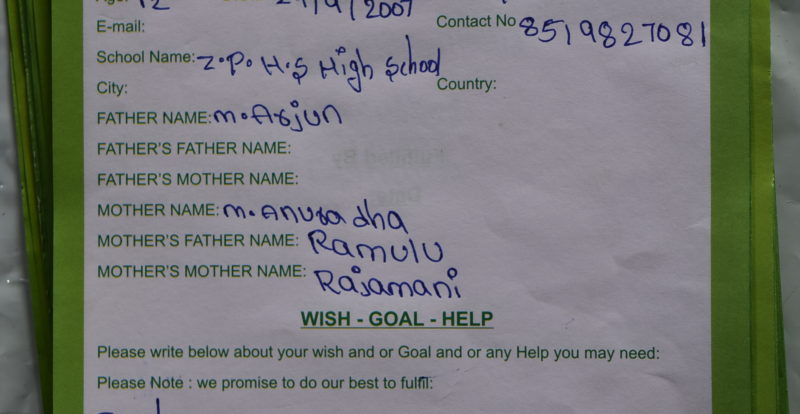 12 /9/2007
E-mail: Contact No 8519827081
School Name: Z.P.H.S High School
City: Country:
FATHER NAME: M.Arjun
FATHER'S FATHER NAME:
FATHER'S MOTHER NAME:
MOTHER NAME: M.Anuradha
MOTHER'S FATHER NAME: Ramulu
MOTHER'S MOTHER NAME: Rajamani
WISH - GOAL - HELP
Please write below about your wish and or Goal and or any Help you may need:
Please Note : we promise to do our best to fulfil: